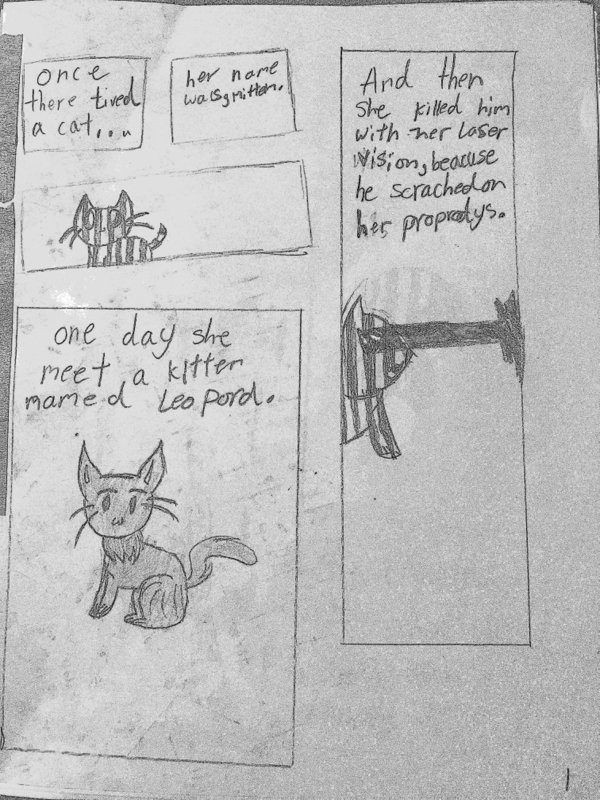 once
there lived
a cat...
her name
was mitten.
one day she
meet a kitten
named Leopord.
And then
she killed him
with her laser
vision, beacuse
he scrached on
her propradys.
1